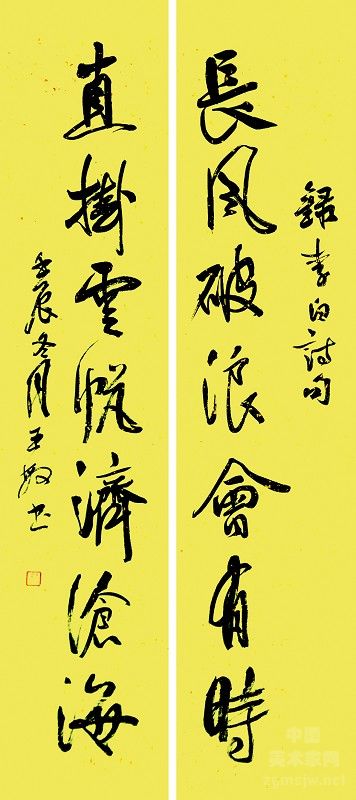 錄李白詩句
長風破浪會有時
直掛雲帆濟滄海
壬辰冬月王敏書
中国
美术家网
zgmsjw.net